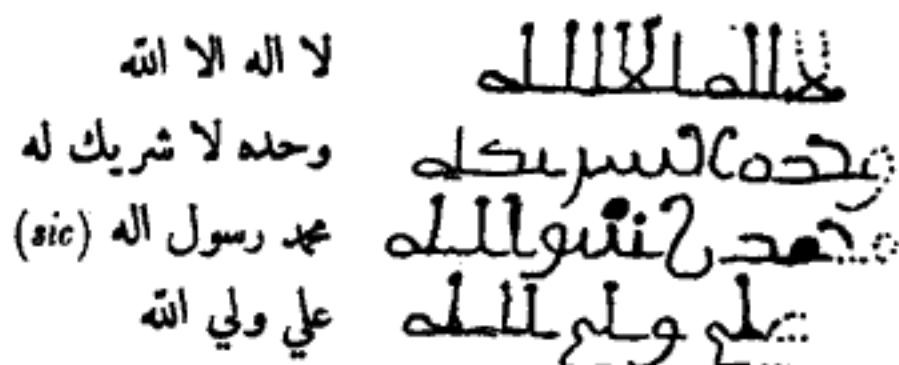 لا اله الا الله
وحده لا شريك له
محمد رسول اله (sic)
علي ولي الله